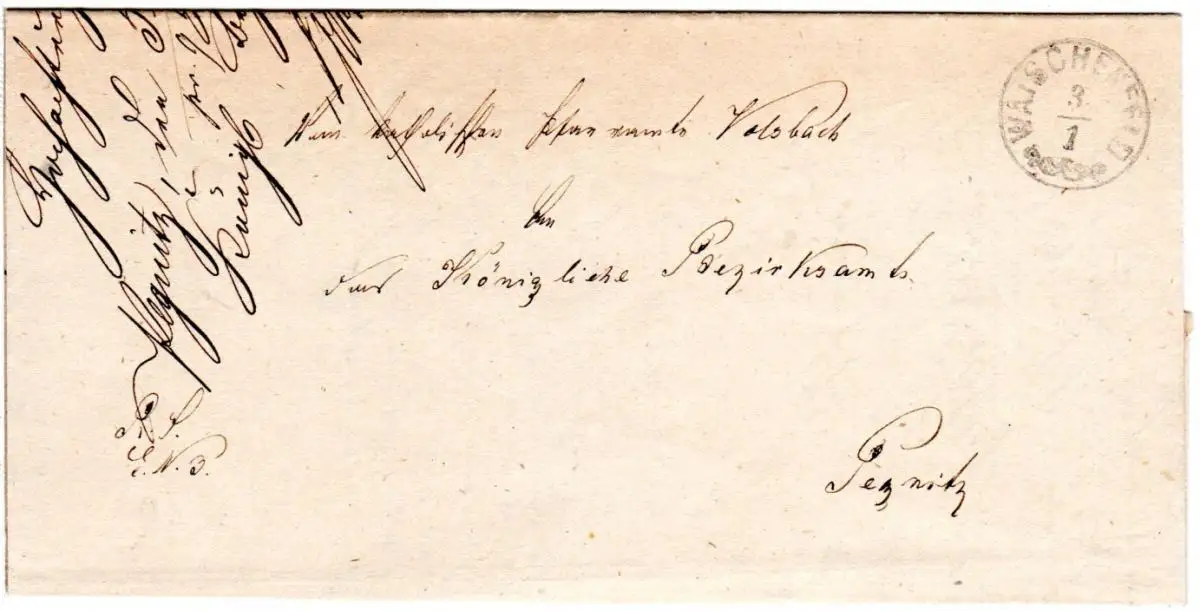 WAISCHENFELD
3
1
Vom katholischen Pfarramte Volsbach
An
das Königliche Bezirksamt
Pegnitz
R. S.
E. N. 3.
Pegnitz, den
König